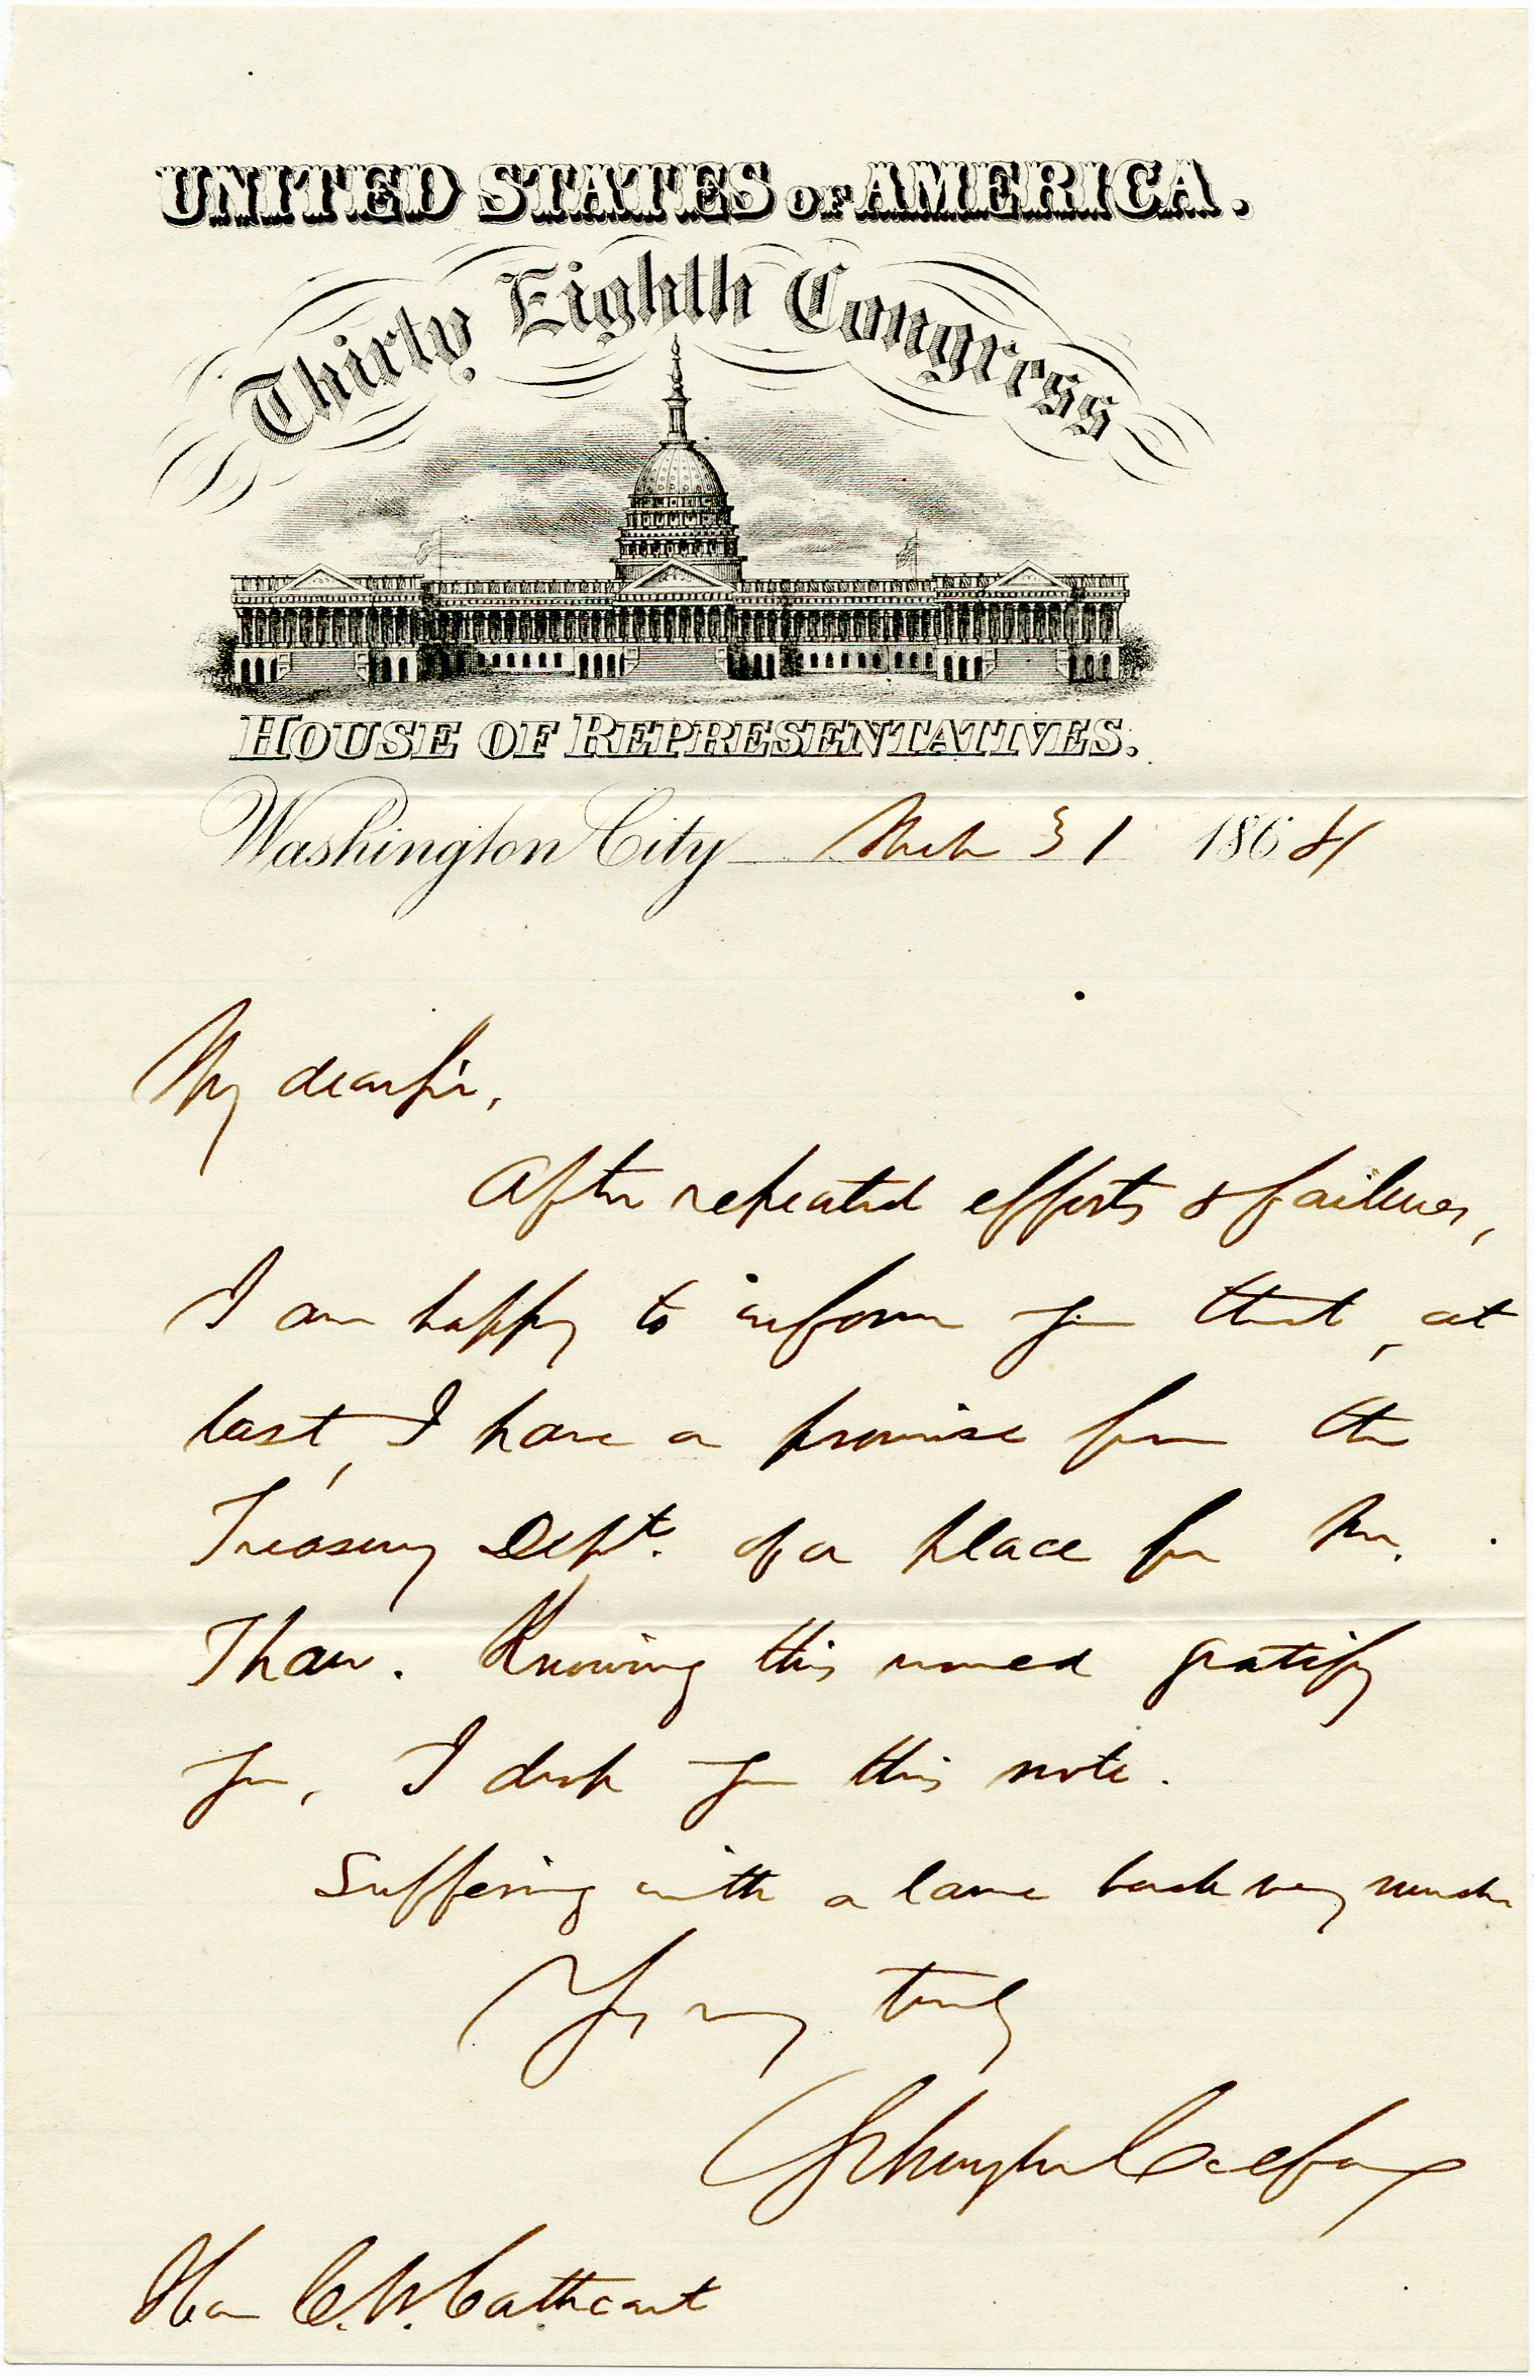 UNITED STATES OF AMERICA.
Thirty Eighth Congress
HOUSE OF REPRESENTATIVES.
Washington City Mch 31 1864
My dear Sir,
After repeated efforts & failures,
I am happy to inform you that, at
last, I have a promise from the
Treasury Dept. of a place for Mr.
Thaw. Knowing this would gratify
you, I drop you this note.
Suffering with a lame back very much
Yrs very truly
Schuyler Colfax
Hon C. W. Cathcart